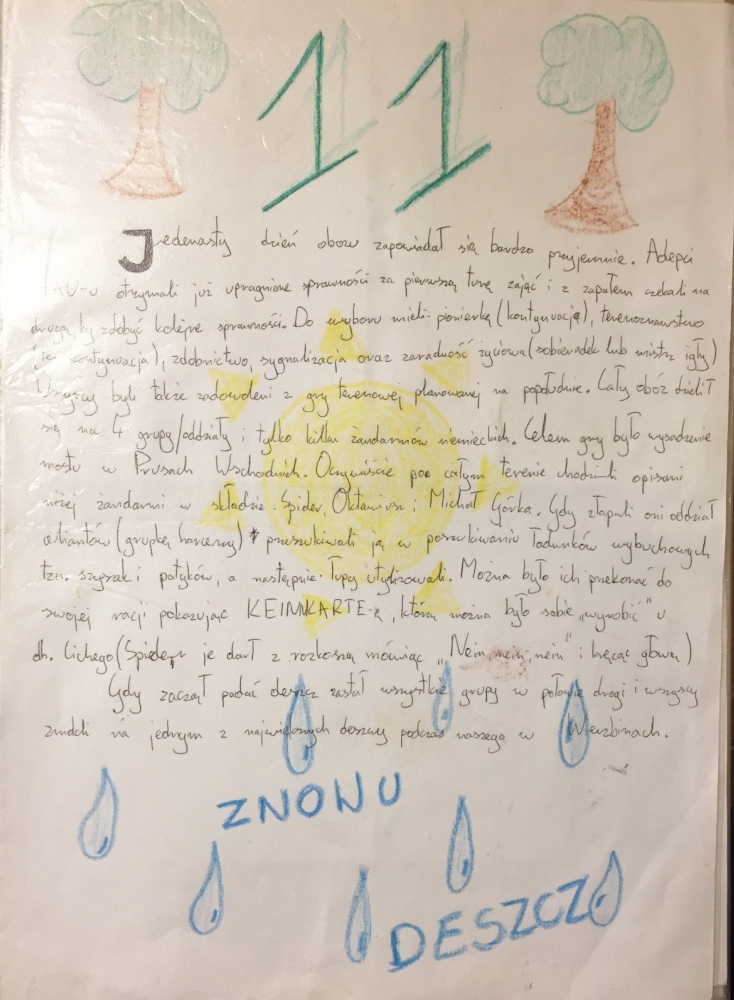 11
Jedenasty dzień obozu zapowiadał się bardzo przyjemnie. Adepci
HAU-u otrzymali już upragnione sprawności za pierwszą turę zajęć i z zapałem czekali na
drugą, by zdobyć kolejne sprawności. Do wyboru mieli: pionierkę (kontynuacja), terenoznawstwo
(też kontynuacja), zdobnictwo, sygnalizacja oraz zaradność życiowa (sobieradek lub mistrz igły)
Wszyscy byli także zadowoleni z gry terenowej planowanej na popołudnie. Cały obóz dzielił
się na 4 grupy/oddziały i tylko kilku żandarmów niemieckich. Celem gry było wysadzenie
mostu w Prusach Wschodnich. Oczywiście po całym terenie chodzili opisani
niżej żandarmi w składzie: Spider, Oktawiusz i Michał Górka. Gdy złapali oni oddział
aliantów (grupkę harcerzy) przeszukiwali ją w poszukiwaniu ładunków wybuchowych
tzn. szyszek i patyków, a następnie łupy utylizowali. Można było ich przekonać do
swojej racji pokazując KEINKARTE-ę, którą można było sobie "wyrobić" u
dh. Cichego (Spider je darł z rozkoszą mówiąc "Nein, nein, nein" i kręcąc głową)
Gdy zaczął padać deszcz zastał wszystkie grupy w połowie drogi i wszyscy
zmokli na jednym z największych deszczy podczas naszego w Wierzbinach.
ZNOWU
DESZCZ